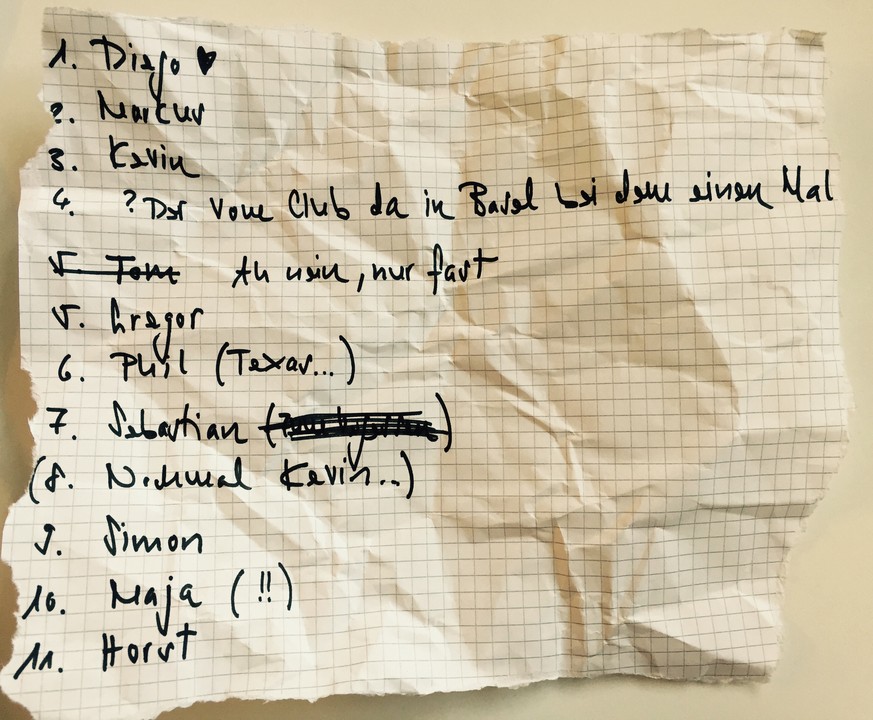 1. Diego ♥
2. Marcus
3. Kevin
4. ? Der vom Club da in Basel bei dem einen Mal
5. Tom Ah nein, nur fast
5. Gregor
6. Phil (Texas...)
7. Sebastian
(8. Nochmal Kevin...)
9. Simon
10. Maja (!!)
11. Horst